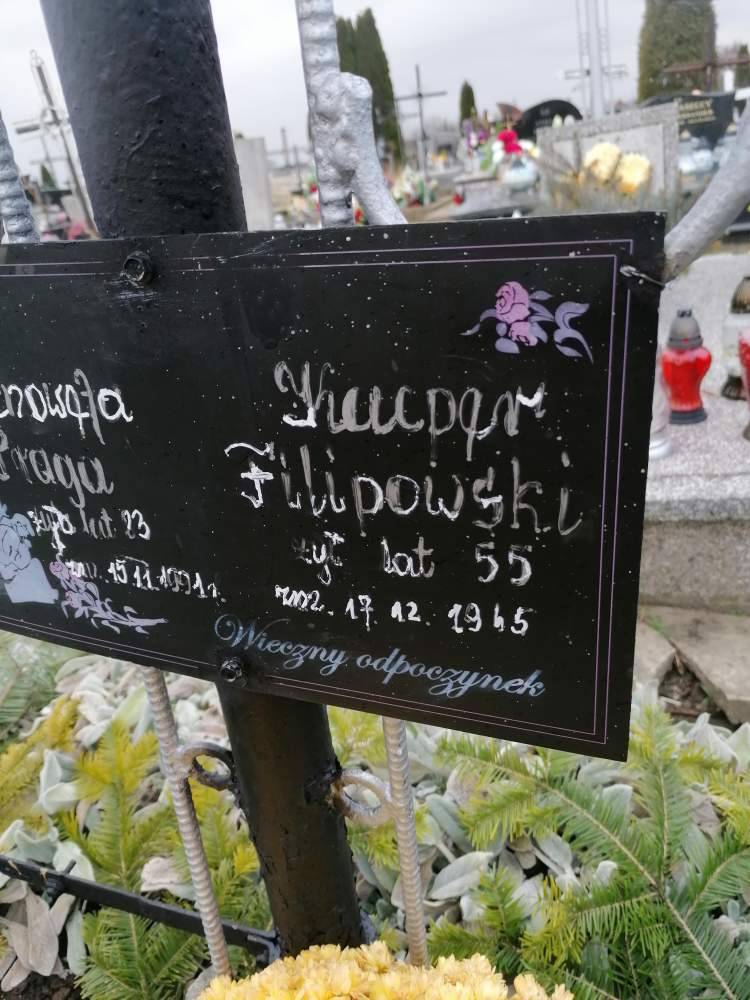 Praga
żyła lat 93
zm. 15.II.1991 r.
Kacper
Filipowski
żył lat 55
zm. 17.12.1945
Wieczny odpoczynek